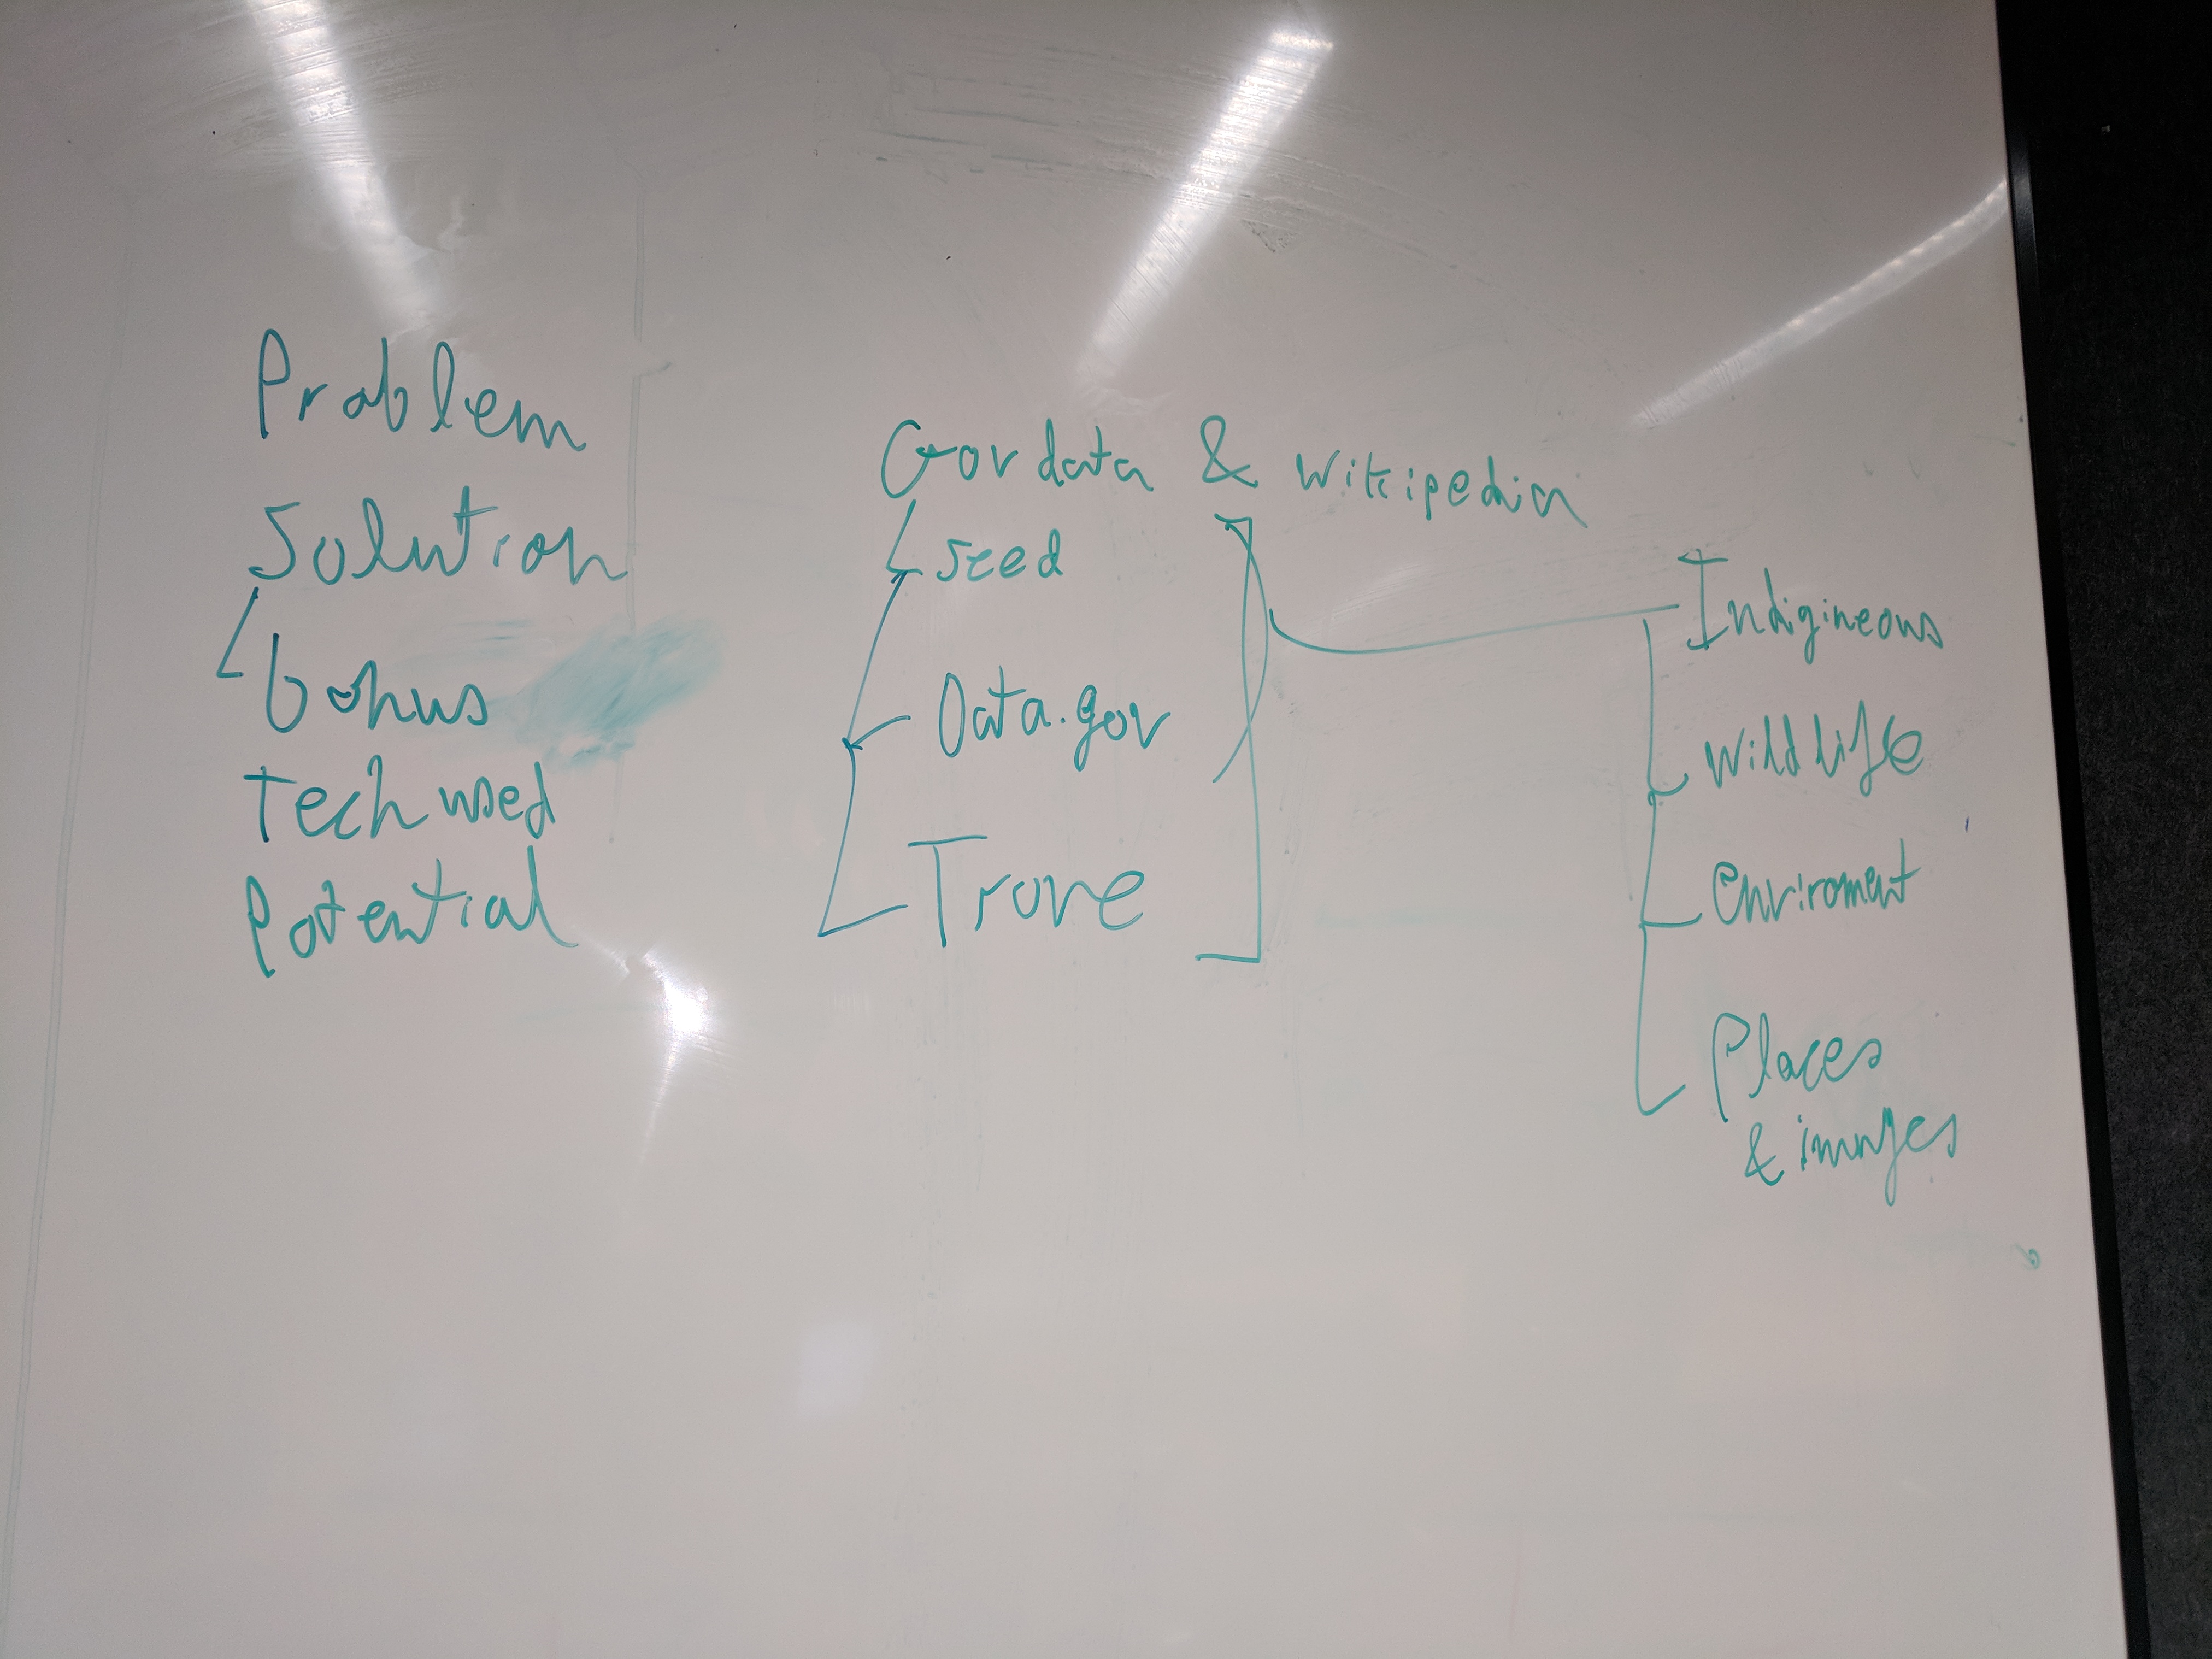 Problem
Solution
bonus
Tech used
Potential
Gov data & wikipedia
seed
Data.gov
Trove
Indigineous
wildlife
enviroment
Places
& images